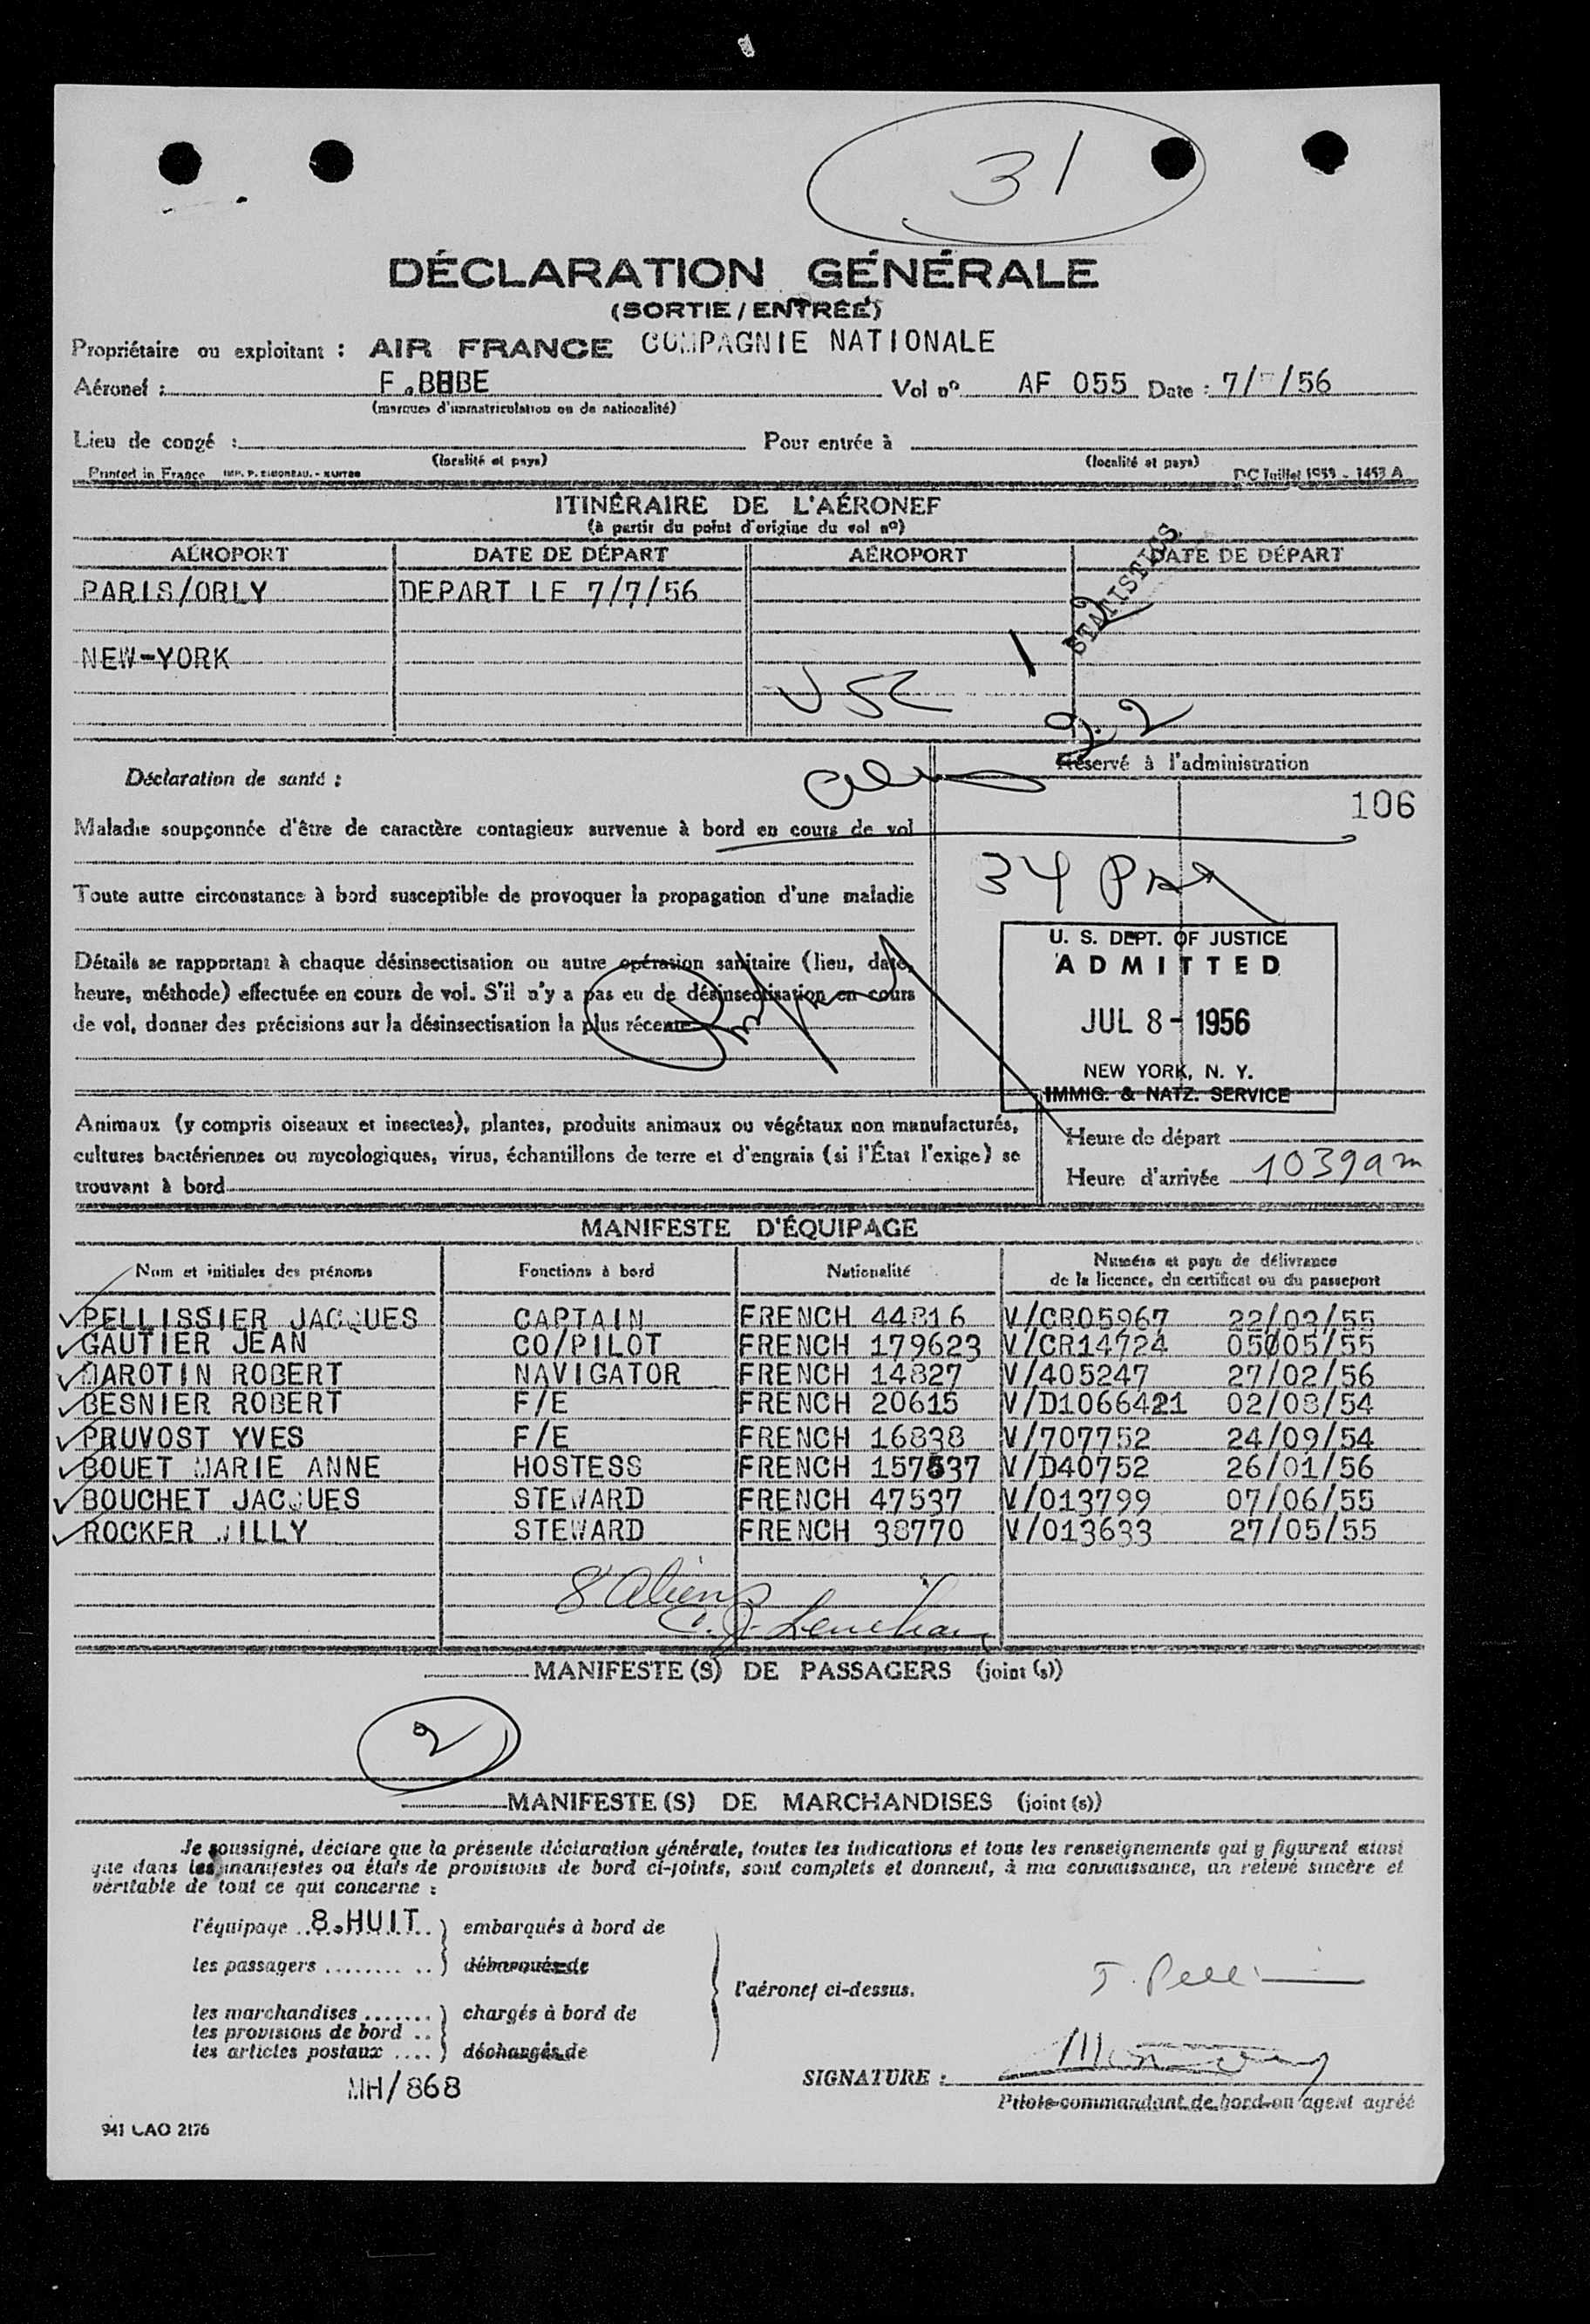 31
DÉCLARATION GÉNÉRALE
(SORTIE / ENTRÉE)
Propriétaire ou exploitant : AIR FRANCE COMPAGNIE NATIONALE
Aéronef : F.BHBE Vol nº AF 055 Date : 7/7/56
(marques d'immatriculation ou de nationalité)
Lieu de congé : Pour entrée à
(localité et pays) (localité et pays)
Printed in France IMP. P. SIMONEAU. - NANTES DC Juillet 1953 - 1453 A
ITINÉRAIRE DE L'AÉRONEF
(à partir du point d'origine du vol nº)
AÉROPORT DATE DE DÉPART AÉROPORT DATE DE DÉPART
STATISTICS
PARIS/ORLY DEPART LE 7/7/56
NEW-YORK
USC 12
22
Déclaration de santé : Réservé à l'administration
106
Maladie soupçonnée d'être de caractère contagieux survenue à bord en cours de vol
34
Toute autre circonstance à bord susceptible de provoquer la propagation d'une maladie
U. S. DEPT. OF JUSTICE
ADMITTED
JUL 8 - 1956
NEW YORK, N. Y.
IMMIG. & NATZ. SERVICE
Détails se rapportant à chaque désinsectisation ou autre opération sanitaire (lieu, date,
heure, méthode) effectuée en cours de vol. S'il n'y a pas eu de désinsectisation en cours
de vol, donner des précisions sur la désinsectisation la plus récente
Animaux (y compris oiseaux et insectes), plantes, produits animaux ou végétaux non manufacturés,
cultures bactériennes ou mycologiques, virus, échantillons de terre et d'engrais (si l'État l'exige) se
trouvant à bord
Heure de départ
Heure d'arrivée 1039am
MANIFESTE D'ÉQUIPAGE
Nom et initiales des prénoms Fonctions à bord Nationalité Numéro et pays de délivrance
de la licence, du certificat ou du passeport
PELLISSIER JACQUES CAPTAIN FRENCH 44816 V/CR05967 22/03/55
GAUTIER JEAN CO/PILOT FRENCH 179623 V/CR14724 05005/55
MAROTIN ROBERT NAVIGATOR FRENCH 14827 V/405247 27/02/56
BESNIER ROBERT F/E FRENCH 20615 V/D1066421 02/08/54
PRUVOST YVES F/E FRENCH 16838 V/707752 24/09/54
BOUET MARIE ANNE HOSTESS FRENCH 157537 V/D40752 26/01/56
BOUCHET JACQUES STEWARD FRENCH 47537 V/013799 07/06/55
ROCKER WILLY STEWARD FRENCH 38770 V/013633 27/05/55
8 Aliens
MANIFESTE (S) DE PASSAGERS (joint (s))
2
MANIFESTE (S) DE MARCHANDISES (joint (s))
Je soussigné, déclare que la présente déclaration générale, toutes les indications et tous les renseignements qui y figurent ainsi
que dans les manifestes ou états de provisions de bord ci-joints, sont complets et donnent, à ma connaissance, un relevé sincère et
véritable de tout ce qui concerne :
l'équipage 8.HUIT embarqués à bord de
les passagers débarqués de
l'aéronef ci-dessus.
les marchandises chargés à bord de
les provisions de bord
les articles postaux déchargés de
MH/868
SIGNATURE :
Pilote-commandant de bord ou agent agréé
941 CAO 2176